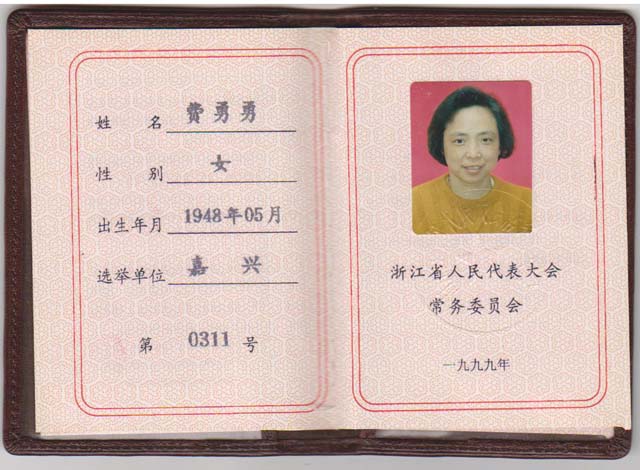 姓 名 费勇勇
性 别 女
出生年月 1948年05月
选举单位 嘉 兴
第 0311 号
浙江省人民代表大会
常务委员会
一九九九年